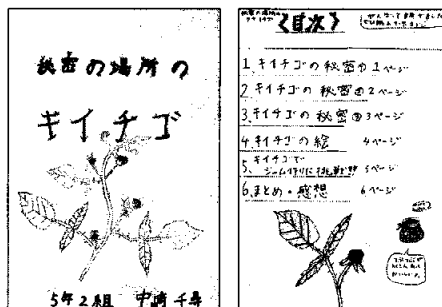 秘密の場所の
キイチゴ
5年2組 中崎千尋
〈目次〉
1.キイチゴの秘密① 1ページ
2.キイチゴの秘密② 2ページ
3.キイチゴの秘密③ 3ページ
4.キイチゴの絵 4ページ
5.キイチゴで
ジャム作りに挑戦 5ページ
6.まとめ・感想 6ページ